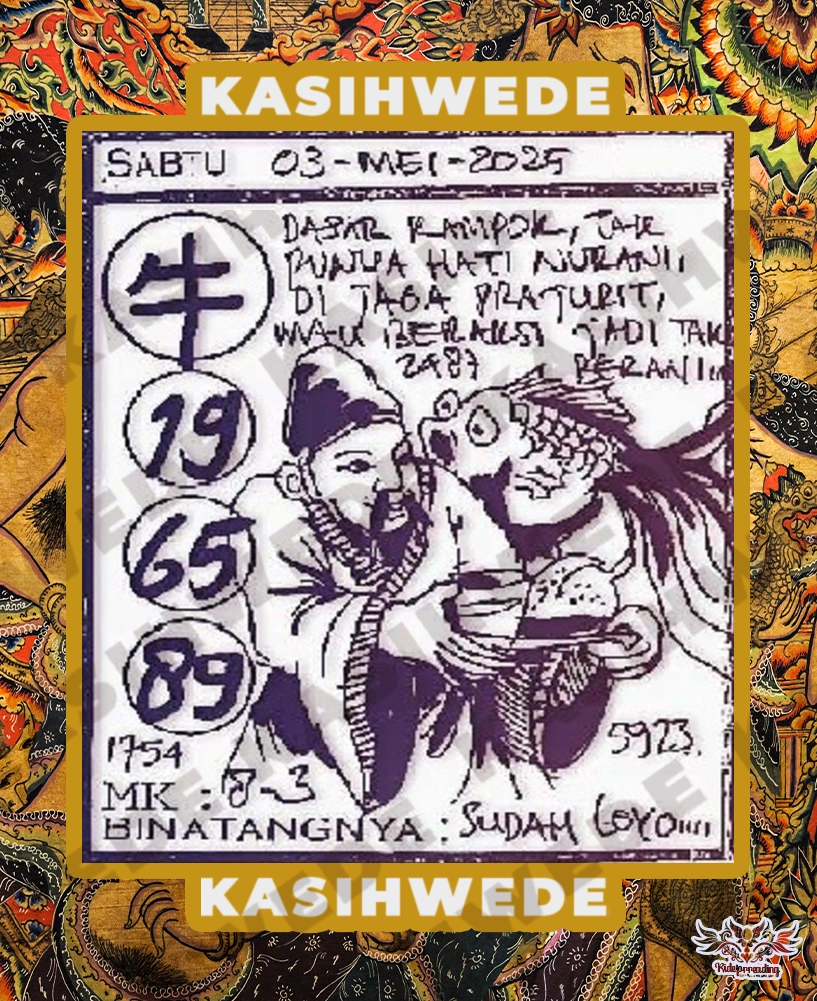 KASIHWEDE
SABTU 03-MEI-2025
牛
DASAR RAMPOK, TAK
PUNYA HATI NURANI,
DI JAGA PRAJURIT,
MAU BERAKSI JADI TAK
2487 BERANI...
19
65
89
1754
5923.
MK : 8-3
BINATANGNYA : SUDAH LOYO....
KASIHWEDE